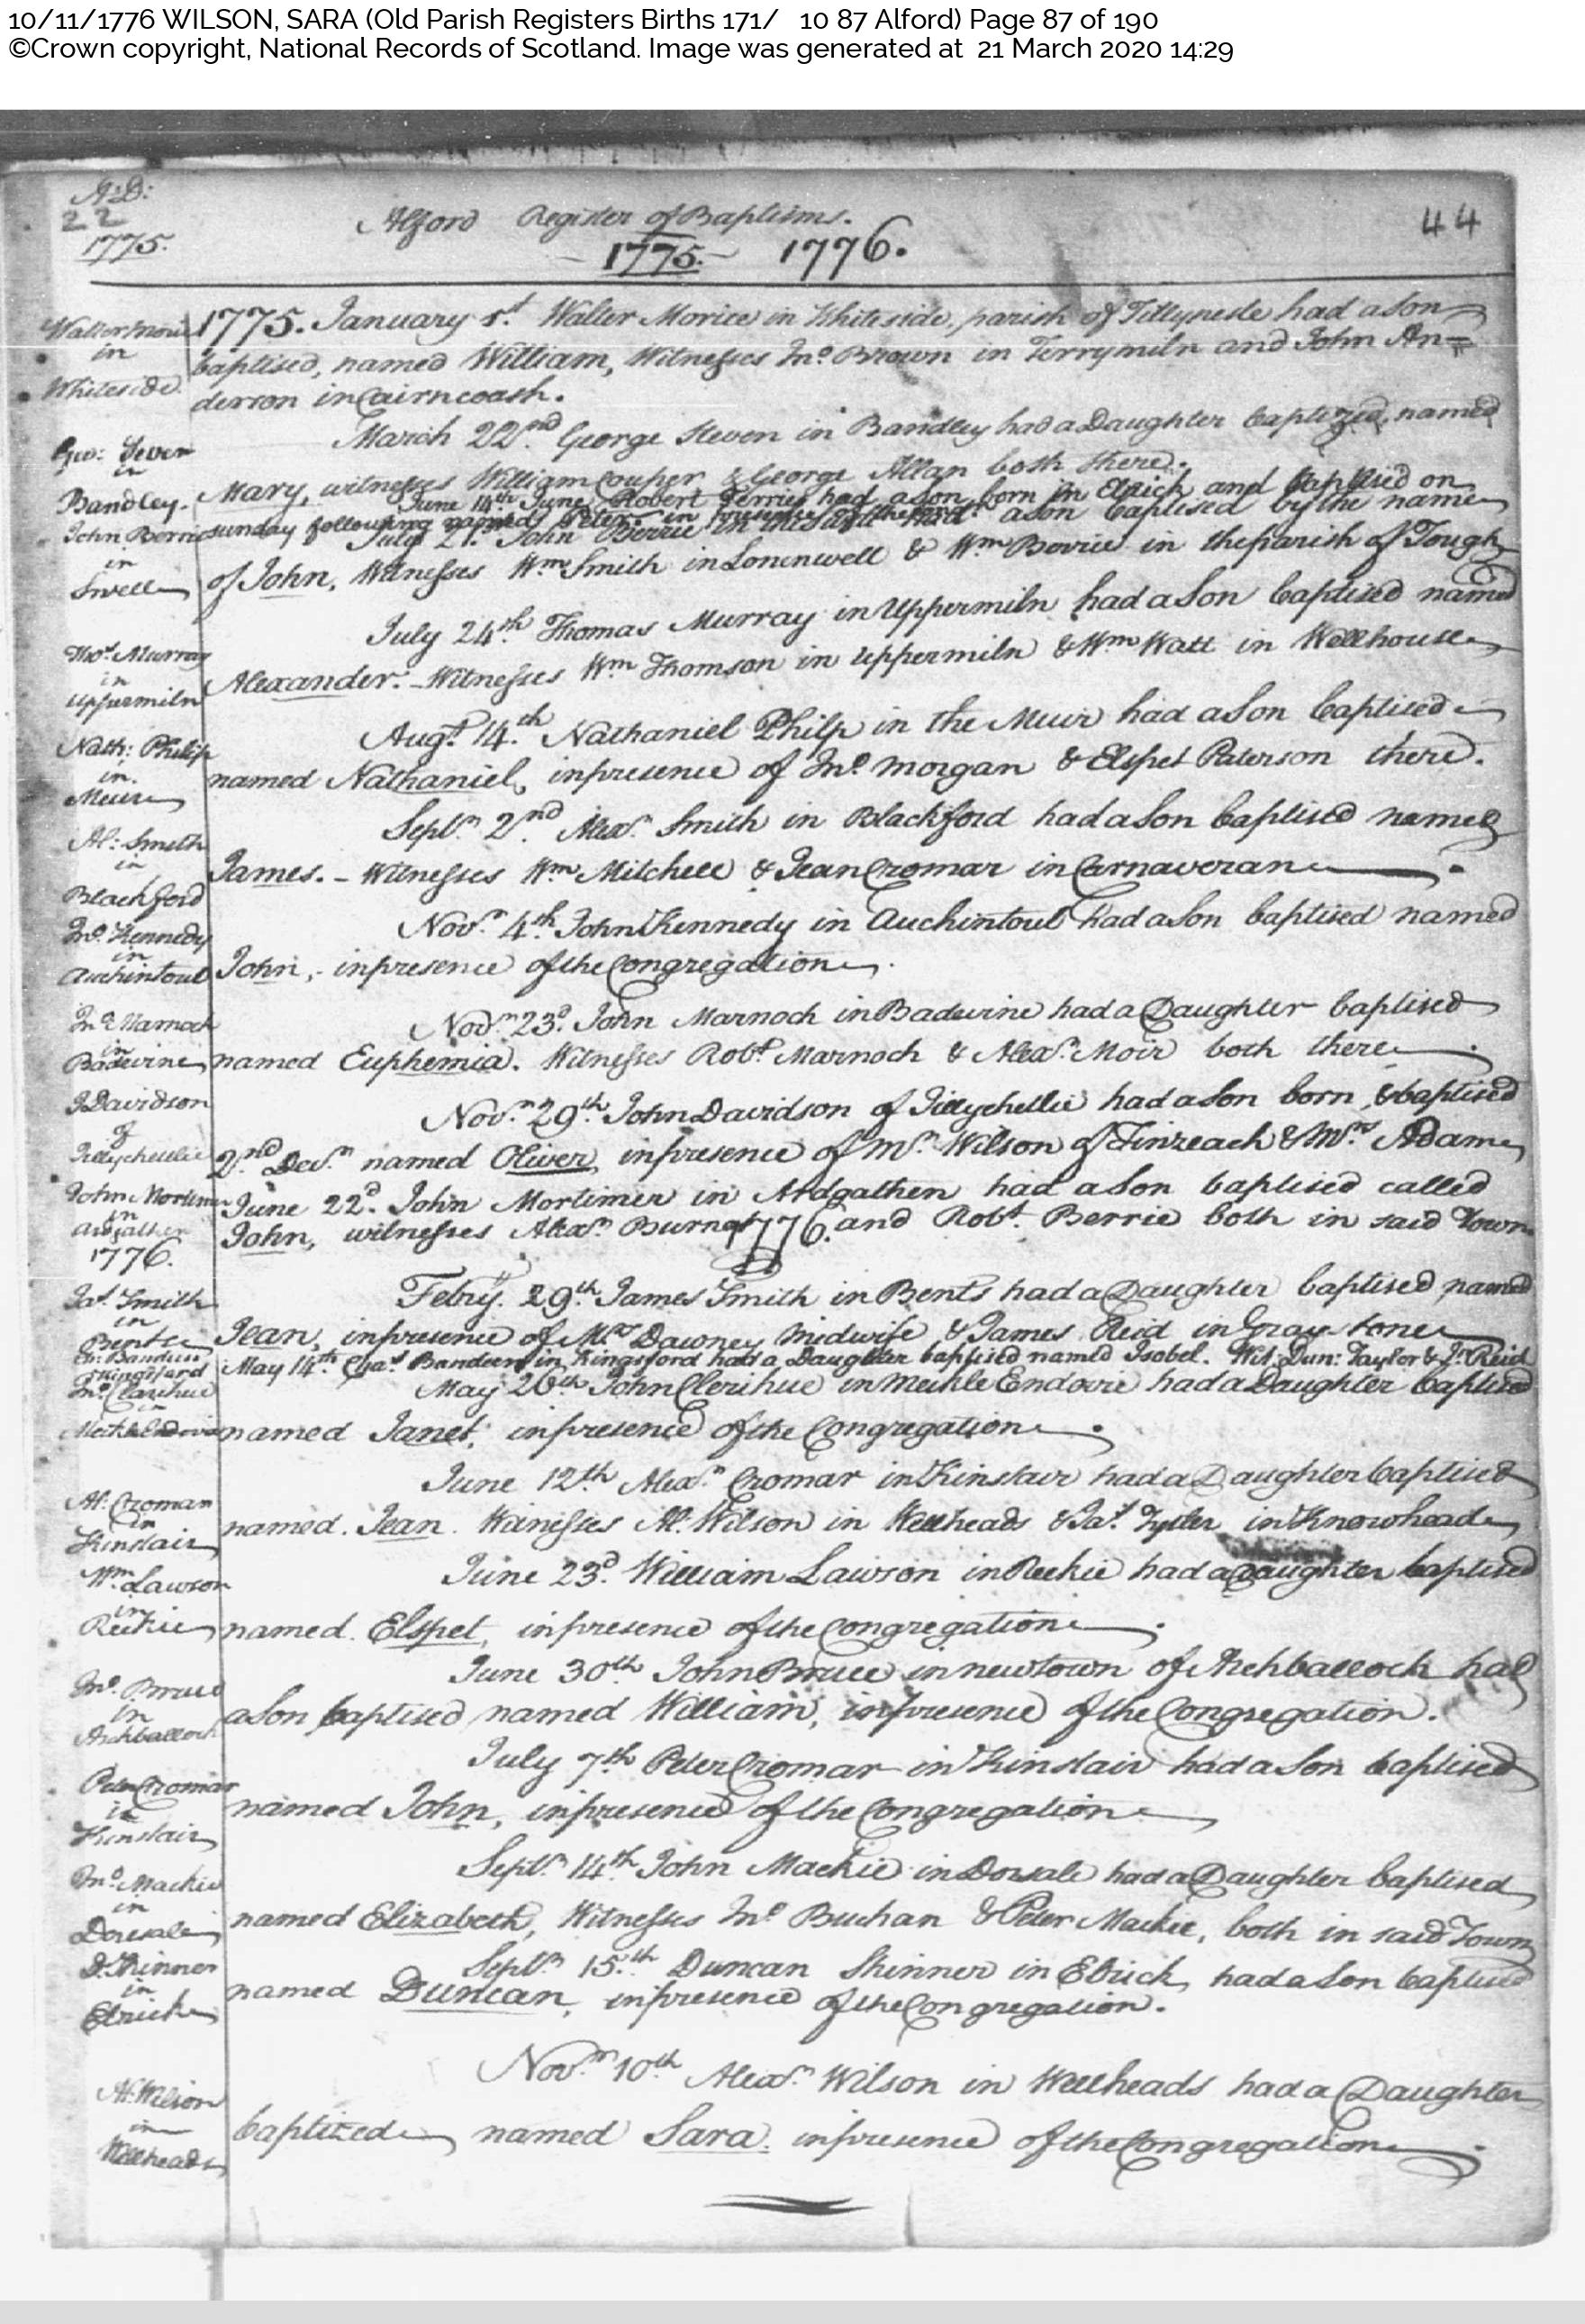 10/11/1776 WILSON, SARA (Old Parish Registers Births 171/ 10 87 Alford) Page 87 of 190
©Crown copyright, National Records of Scotland. Image was generated at 21 March 2020 14:29
A:D:
22
1775.
Alford Register of Baptisms.
1775. 1776.
44
Walter Morice
in
Whiteside.
1775. January 1st. Walter Morice in Whiteside, parish of Tillynesle had a Son
baptised, named William, Witnesses Jno. Brown in Terrymiln and John An=
derson in Cairncoash.
Geo: Steven
in
Bandley.
March 22nd. George Steven in Bandley had a Daughter baptized, named
Mary, witnesses William Couper & George Allan both there.
June 14th June Robert Ferries had a Son born in Elrich and baptised on
sunday following named Peter in presence of the
John Berrie
in
July 21st. John Berrie in had a son baptised by the name
of John, Witnesses Wm. Smith in Lonenwell & Wm. Bovice in the parish of Tough
Thos. Murray
in
Uppermiln
July 24th. Thomas Murray in Uppermiln had a Son baptised named
Alexander. Witnesses Wm. Thomson in Uppermiln & Wm. Watt in Wellhouse
Nath: Philip
in
Muir
Augt. 14th. Nathaniel Philp in the Muir had a Son baptised
named Nathaniel, in presence of Jno. Morgan & Elspet Paterson there.
Al: Smith
in
Blackford
Septr. 2nd Alexr. Smith in Blackford had a Son baptised named
James. - Witnesses Wm. Mitchell & Jean Cromar in Carnaveran.
Jno. Kennedy
in
Auchintoul
Novr. 4th. John Kennedy in Auchintoul had a Son baptised named
John, - in presence of the Congregation.
Jno. Marnoch
in
Badivine
Novr. 23d. John Marnoch in Badivine had a Daughter baptised
named Euphemia. Witnesses Robt. Marnoch & Alexr. Moir both there.
J Davidson
of
Tillychellie
Novr. 29th. John Davidson of Tillychellie had a Son born, & baptised
2nd Decr. named Oliver in presence of Mr. Wilson of Finzeach & Mrs. Adam
John Mortimer
in
Ardgathen
June 22d. John Mortimer in Ardgathen had a Son baptised called
John, witnesses Alexr. Burnet and Robt. Berrie both in said Town
1776.
1776.
Jas. Smith
in
Bents
Febry. 29th. James Smith in Bents had a Daughter baptised named
Jean, in presence of Mrs Dawney Midwife & James Reid in Graystone
Kingsford
May 14th. Chas. Bandeen in Kingsford had a Daughter baptised named Isobel. Wit: Dun: Taylor & Jn. Reid
Jno. Clerihue
in
Meikle Endovie
May 26th John Clerihue in Meikle Endovie had a Daughter baptised
named Janet, in presence of the Congregation.
Al: Cromar
in
Kinstair
June 12th Alexr. Cromar in Kinstair had a Daughter baptised
named Jean. Witnesses Al. Wilson in Wellheads & Jas. Tyler in Knowhead
Wm. Lawson
in
Reekie
June 23d. William Lawson in Reekie had a Daughter baptised
named Elspet, in presence of the Congregation.
Jno. Bruce
in
Archballoch
June 30th John Bruce in newtown of Archballoch had
a Son baptised named William, in presence of the Congregation.
Peter Cromar
in
Kinstair
July 7th Peter Cromar in Kinstair had a Son baptised
named John, in presence of the Congregation
Jno. Mackie
in
Dorsale
Septr. 14th John Mackie in Dorsale had a Daughter baptised
named Elizabeth, Witnesses Jno. Buchan & Peter Mackie, both in said Town
D. Skinner
in
Elrick
Septr. 15th Duncan Skinner in Elrick, had a Son baptised
named Duncan, in presence of the Congregation.
Al. Wilson
in
Wellheads
Novr. 10th Alexr. Wilson in Wellheads had a Daughter
baptized named Sara. in presence of the Congregation.